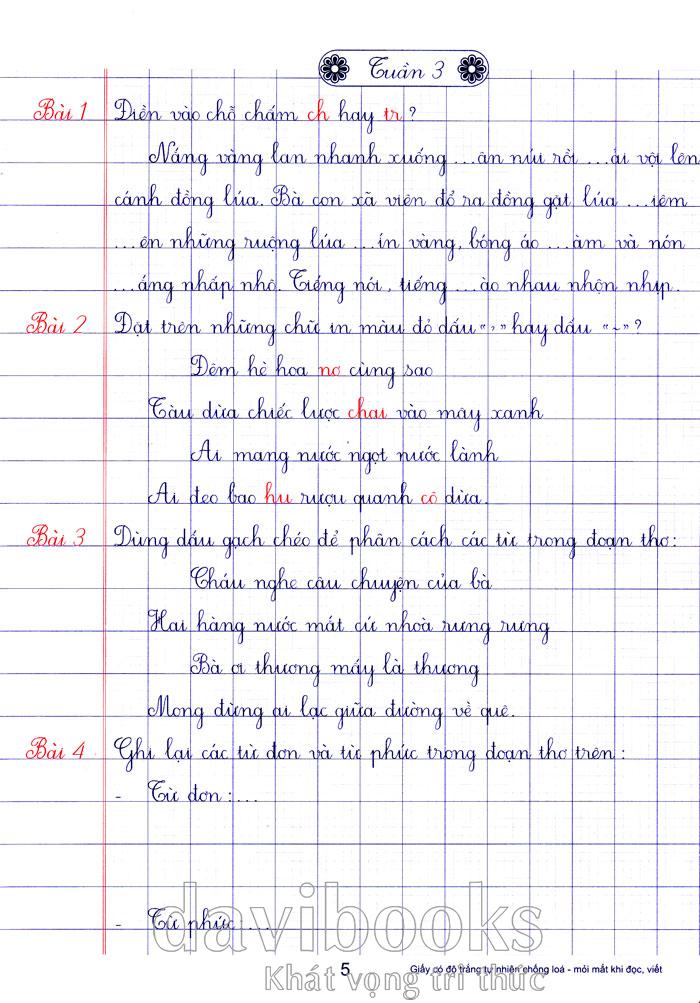 Tuần 3
Bài 1 Điền vào chỗ chấm ch hay tr ?
Nắng vàng lan nhanh xuống ...ân núi rồi ...ải vội lên
cánh đồng lúa. Bà con xã viên đổ ra đồng gặt lúa ...iêm
...ên những ruộng lúa ...ín vàng, bóng áo ...àm và nón
...ắng nhấp nhô. Tiếng nói, tiếng ...ào nhau nhộn nhịp.
Bài 2 Đặt trên những chữ in màu đỏ dấu “ ̉ ” hay dấu “ ~ ” ?
Đêm hè hoa nơ cùng sao
Tàu dừa chiếc lược chai vào mây xanh
Ai mang nước ngọt nước lành
Ai đeo bao hu rượu quanh cô dừa.
Bài 3 Dùng dấu gạch chéo để phân cách các từ trong đoạn thơ :
Cháu nghe câu chuyện của bà
Hai hàng nước mắt cứ nhoà rưng rưng
Bà ơi thương mấy là thương
Mong đừng ai lạc giữa đường về quê.
Bài 4 Ghi lại các từ đơn và từ phức trong đoạn thơ trên :
- Từ đơn : ...
- Từ phức : ...
davibooks
Khát vọng tri thức
5 Giấy có độ trắng tự nhiên chống loá - mỏi mắt khi đọc, viết